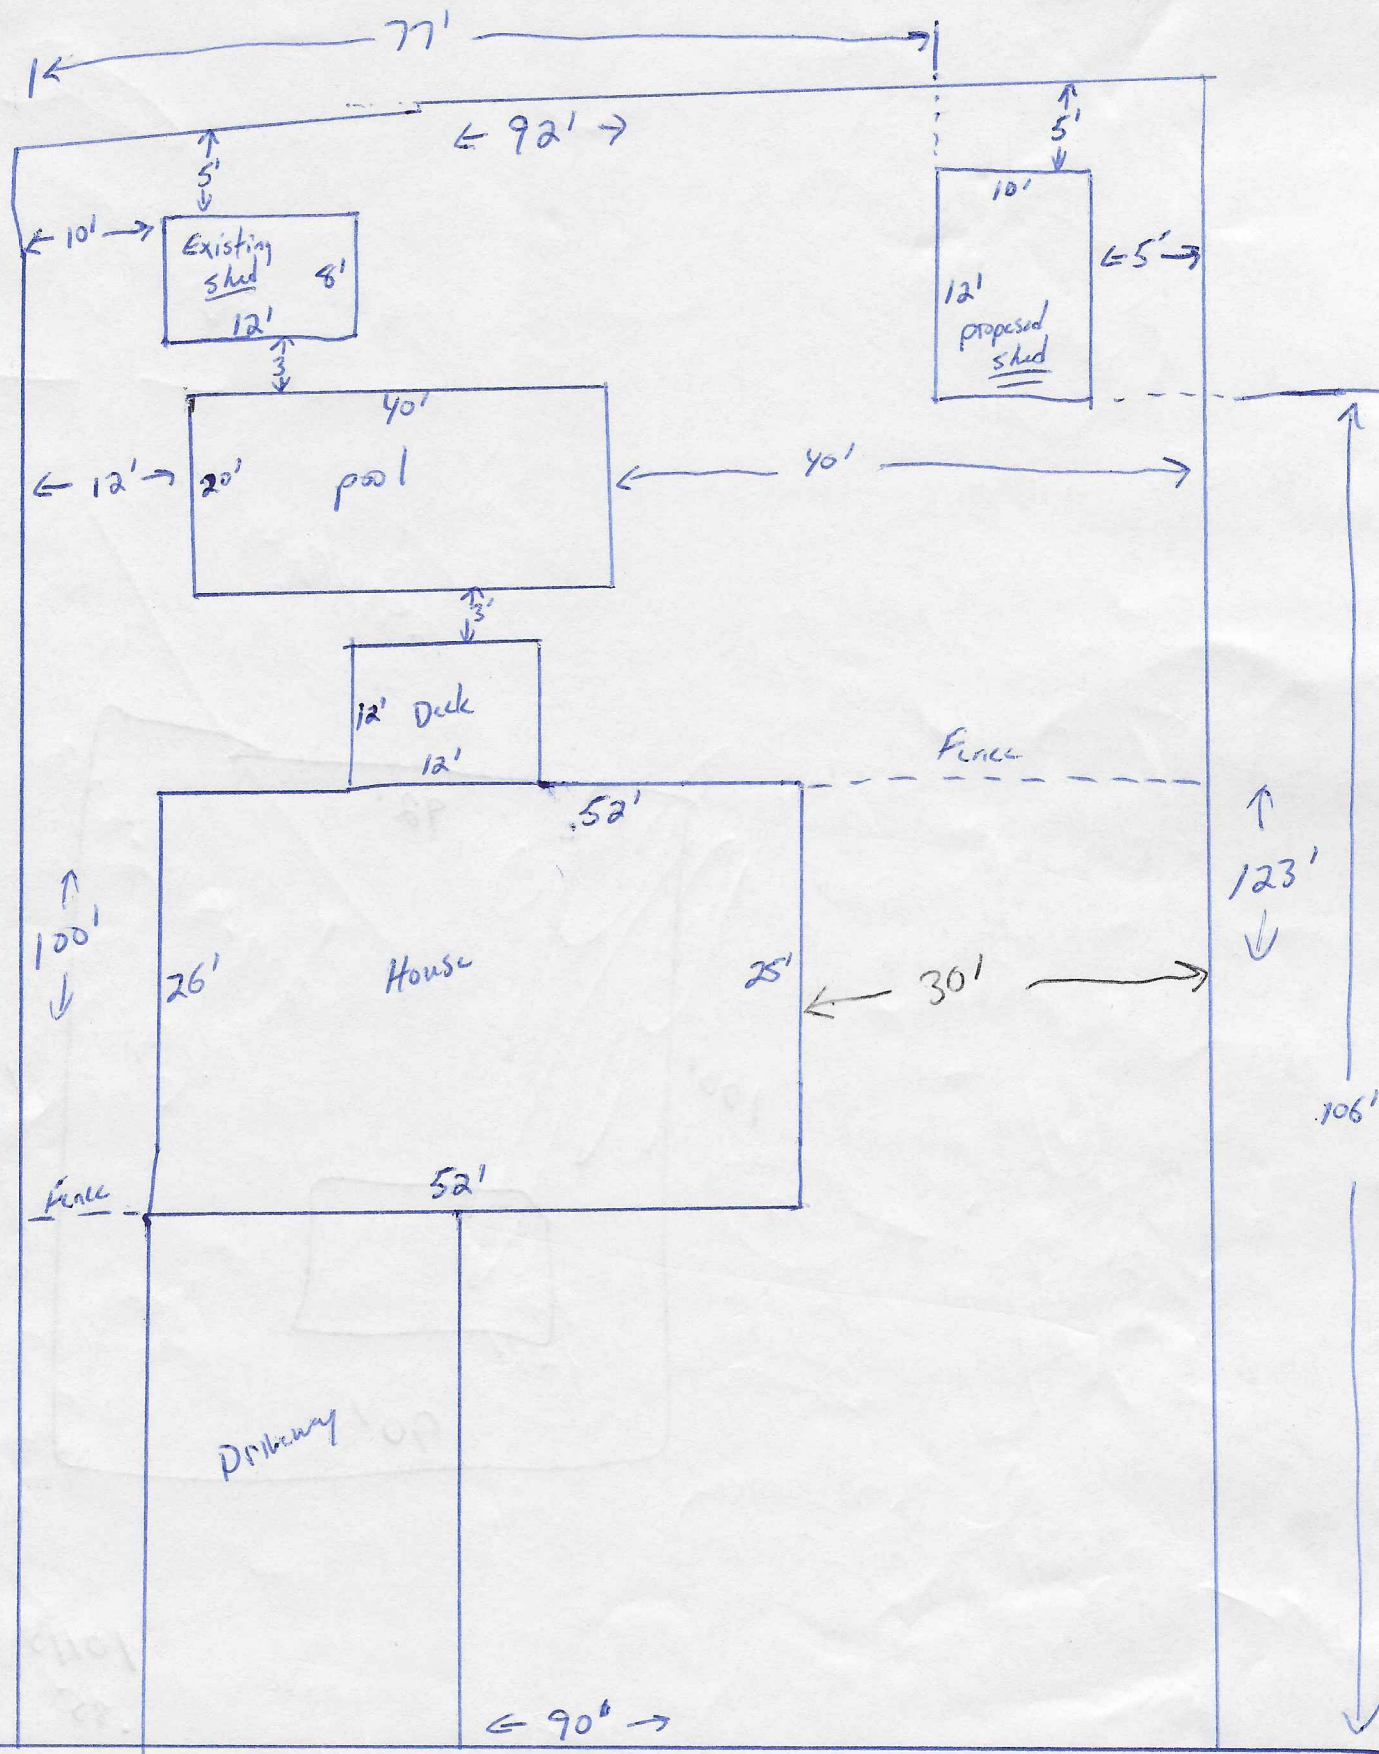 77'
92'
5'
5'
10'
10'
Existing
shed
8'
12'
5'
12'
proposed
shed
3
40'
12'
20'
pool
40'
3'
12' Deck
12'
Fence
52'
123'
100'
26'
House
25'
30'
106'
52'
Fence
Driveway
90'